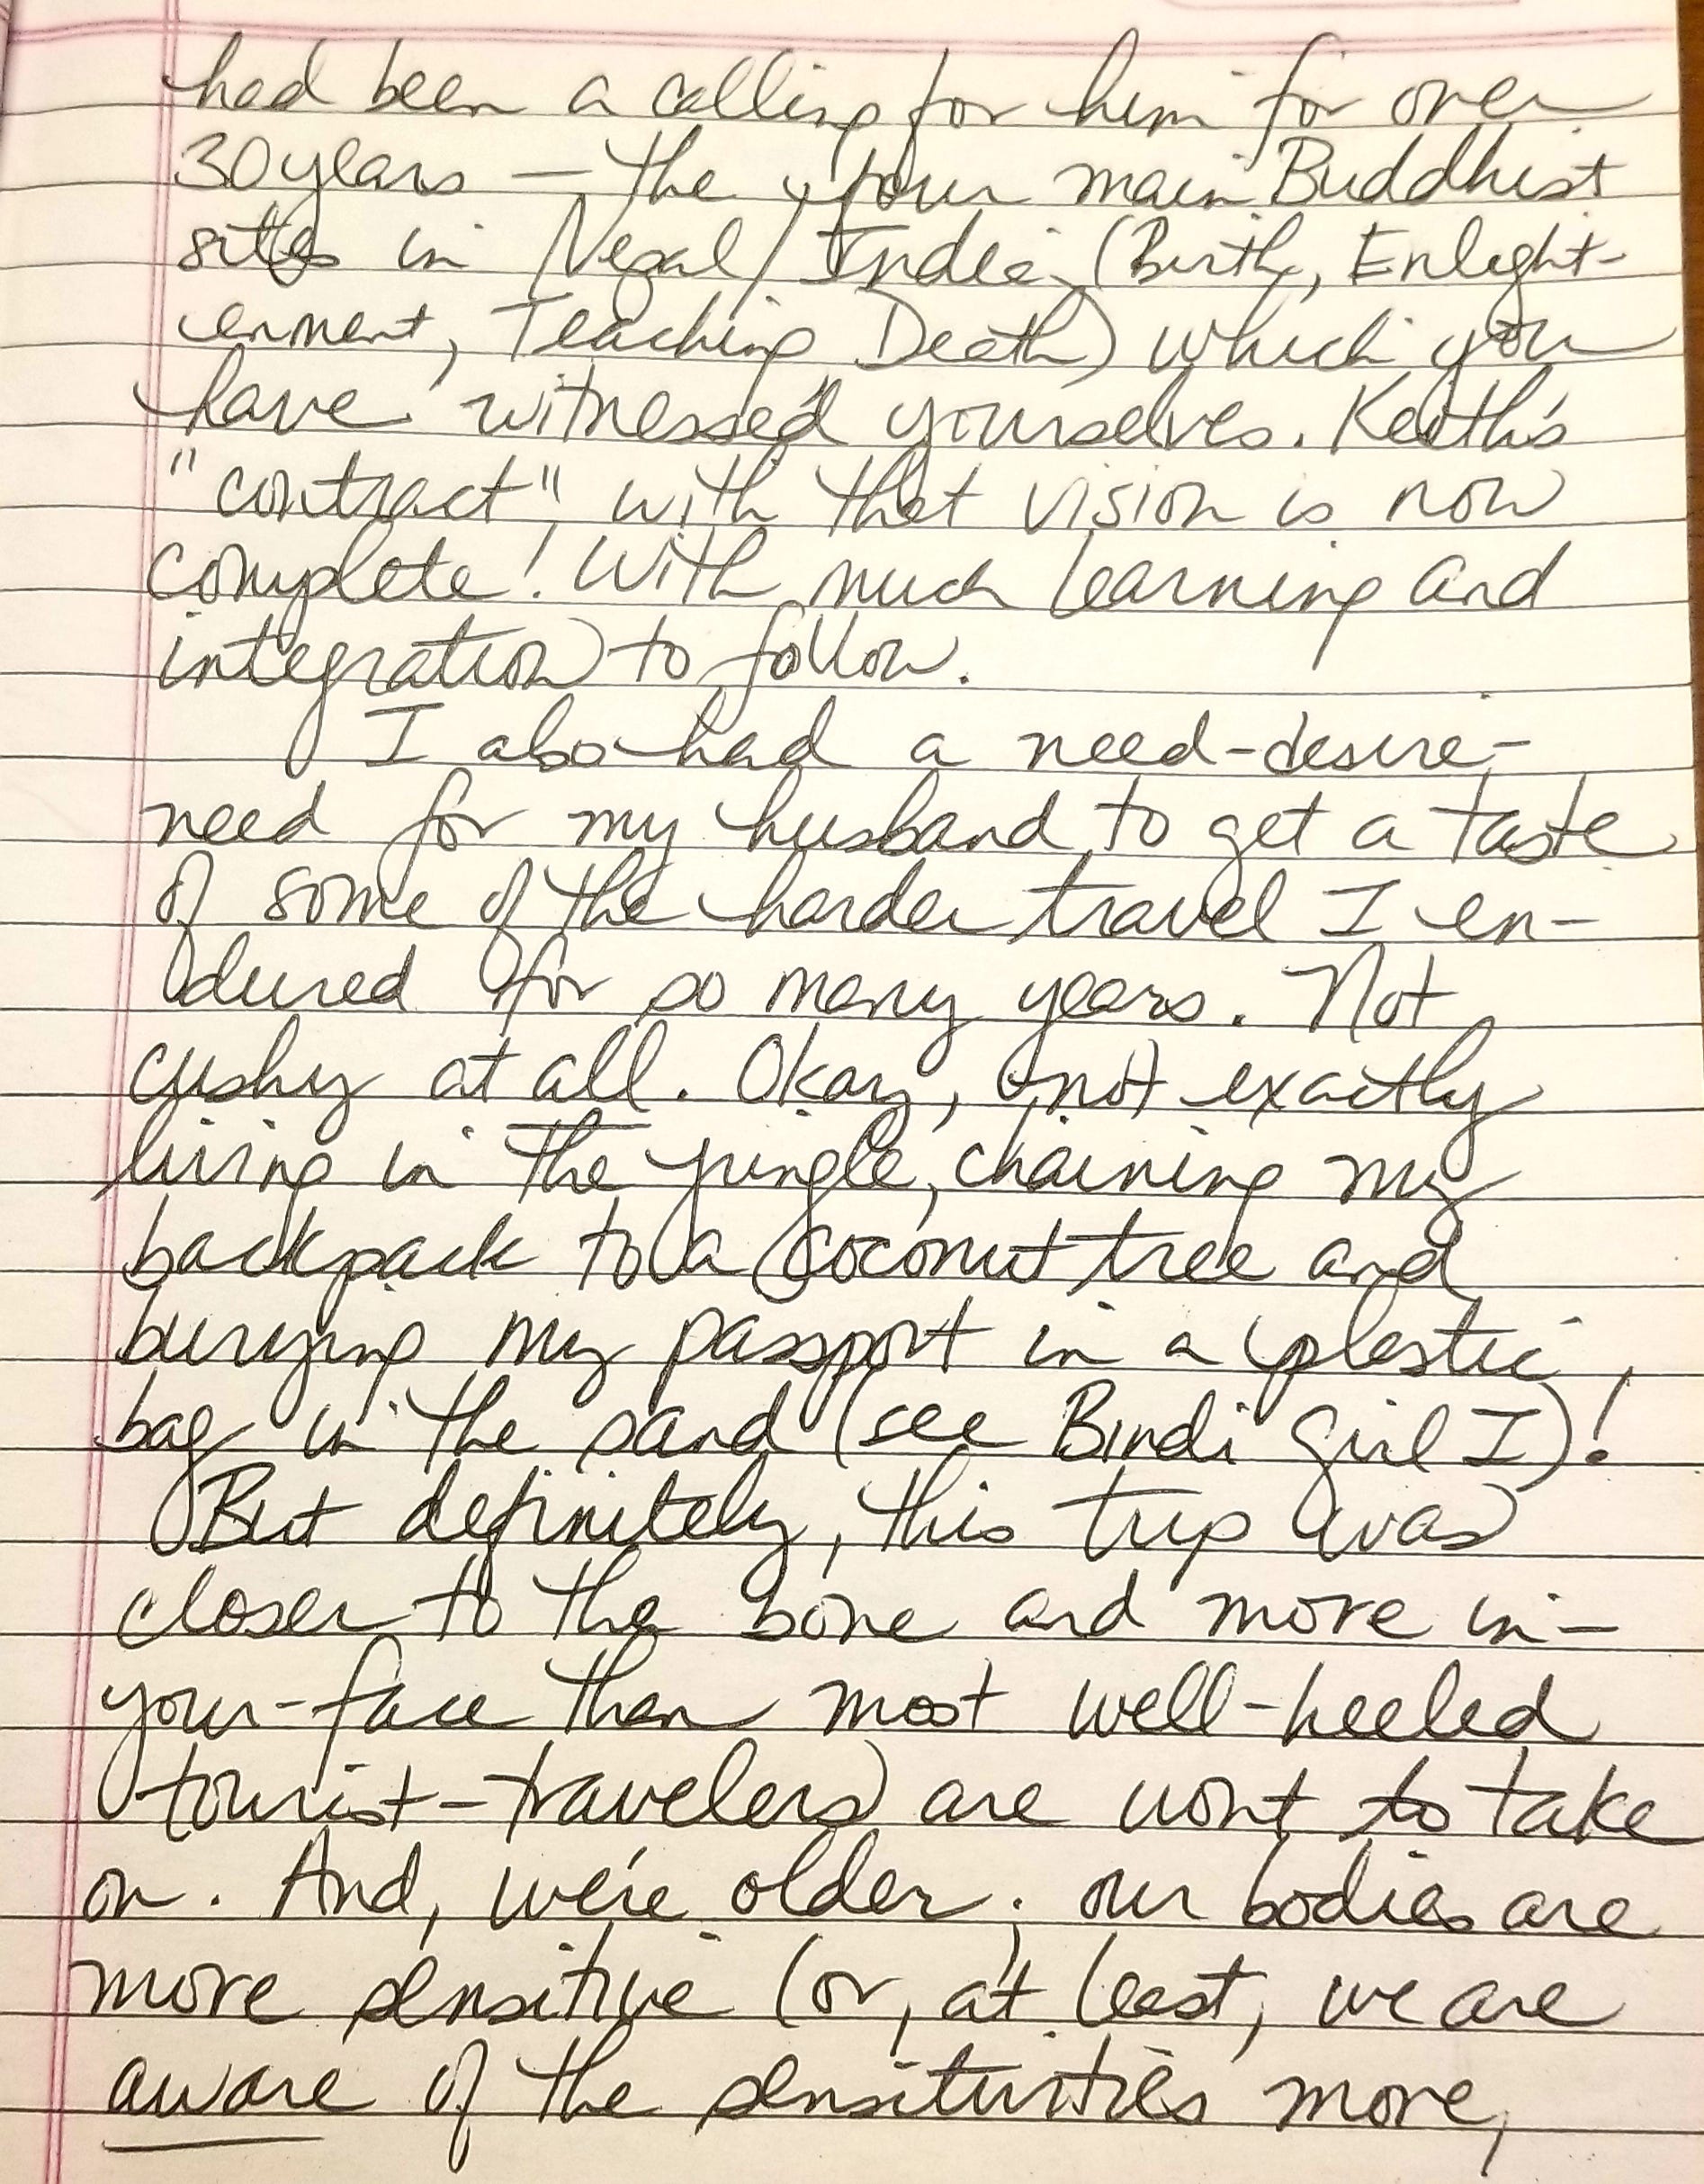 had been a calling for him for over
30 years — the four main Buddhist
sites in Nepal/India (Birth, Enlight-
enment, Teaching Death) which you
have witnessed yourselves. Keith's
"contract" with that vision is now
complete! With much learning and
integration to follow.
I also had a need-desire-
need for my husband to get a taste
of some of the harder travel I en-
dured for so many years. Not
cushy at all. Okay, not exactly
living in the jungle, chaining my
backpack to a coconut tree and
burying my passport in a plastic
bag in the sand (see Bindi Girl I)!
But definitely, this trip was
closer to the bone and more in-
your-face than most well-heeled
tourist-travelers are wont to take
on. And, we're older; our bodies are
more sensitive (or, at least, we are
aware of the sensitivities more,